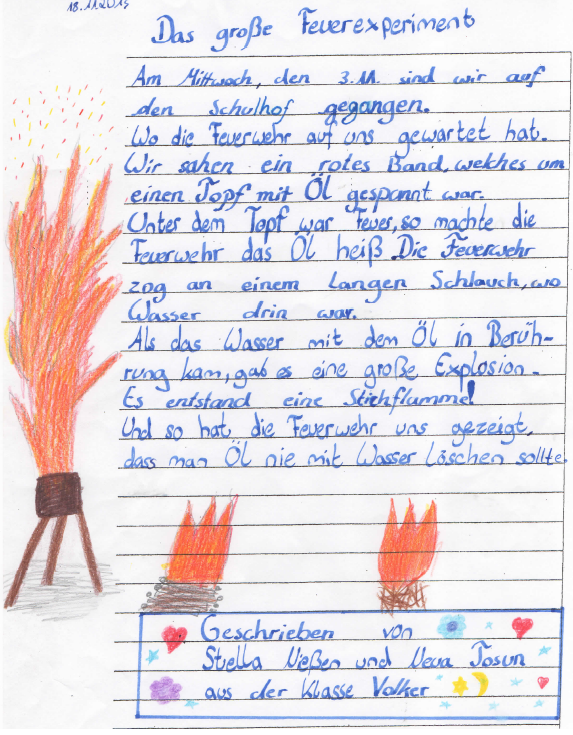 18.11.2015
Das große Feuerexperiment
Am Mittwoch, den 3.11. sind wir auf
den Schulhof gegangen.
Wo die Feuerwehr auf uns gewartet hat.
Wir sahen ein rotes Band, welches um
einen Topf mit Öl gespannt war.
Unter dem Topf war Feuer, so machte die
Feuerwehr das Öl heiß. Die Feuerwehr
zog an einem langen Schlauch, wo
Wasser drin war.
Als das Wasser mit dem Öl in Berüh-
rung kam, gab es eine große Explosion.
Es entstand eine Stichflamme!
Und so hat die Feuerwehr uns gezeigt,
dass man Öl nie mit Wasser löschen sollte.
Geschrieben von
Stella Nießen und Tosun
aus der Klasse Volker